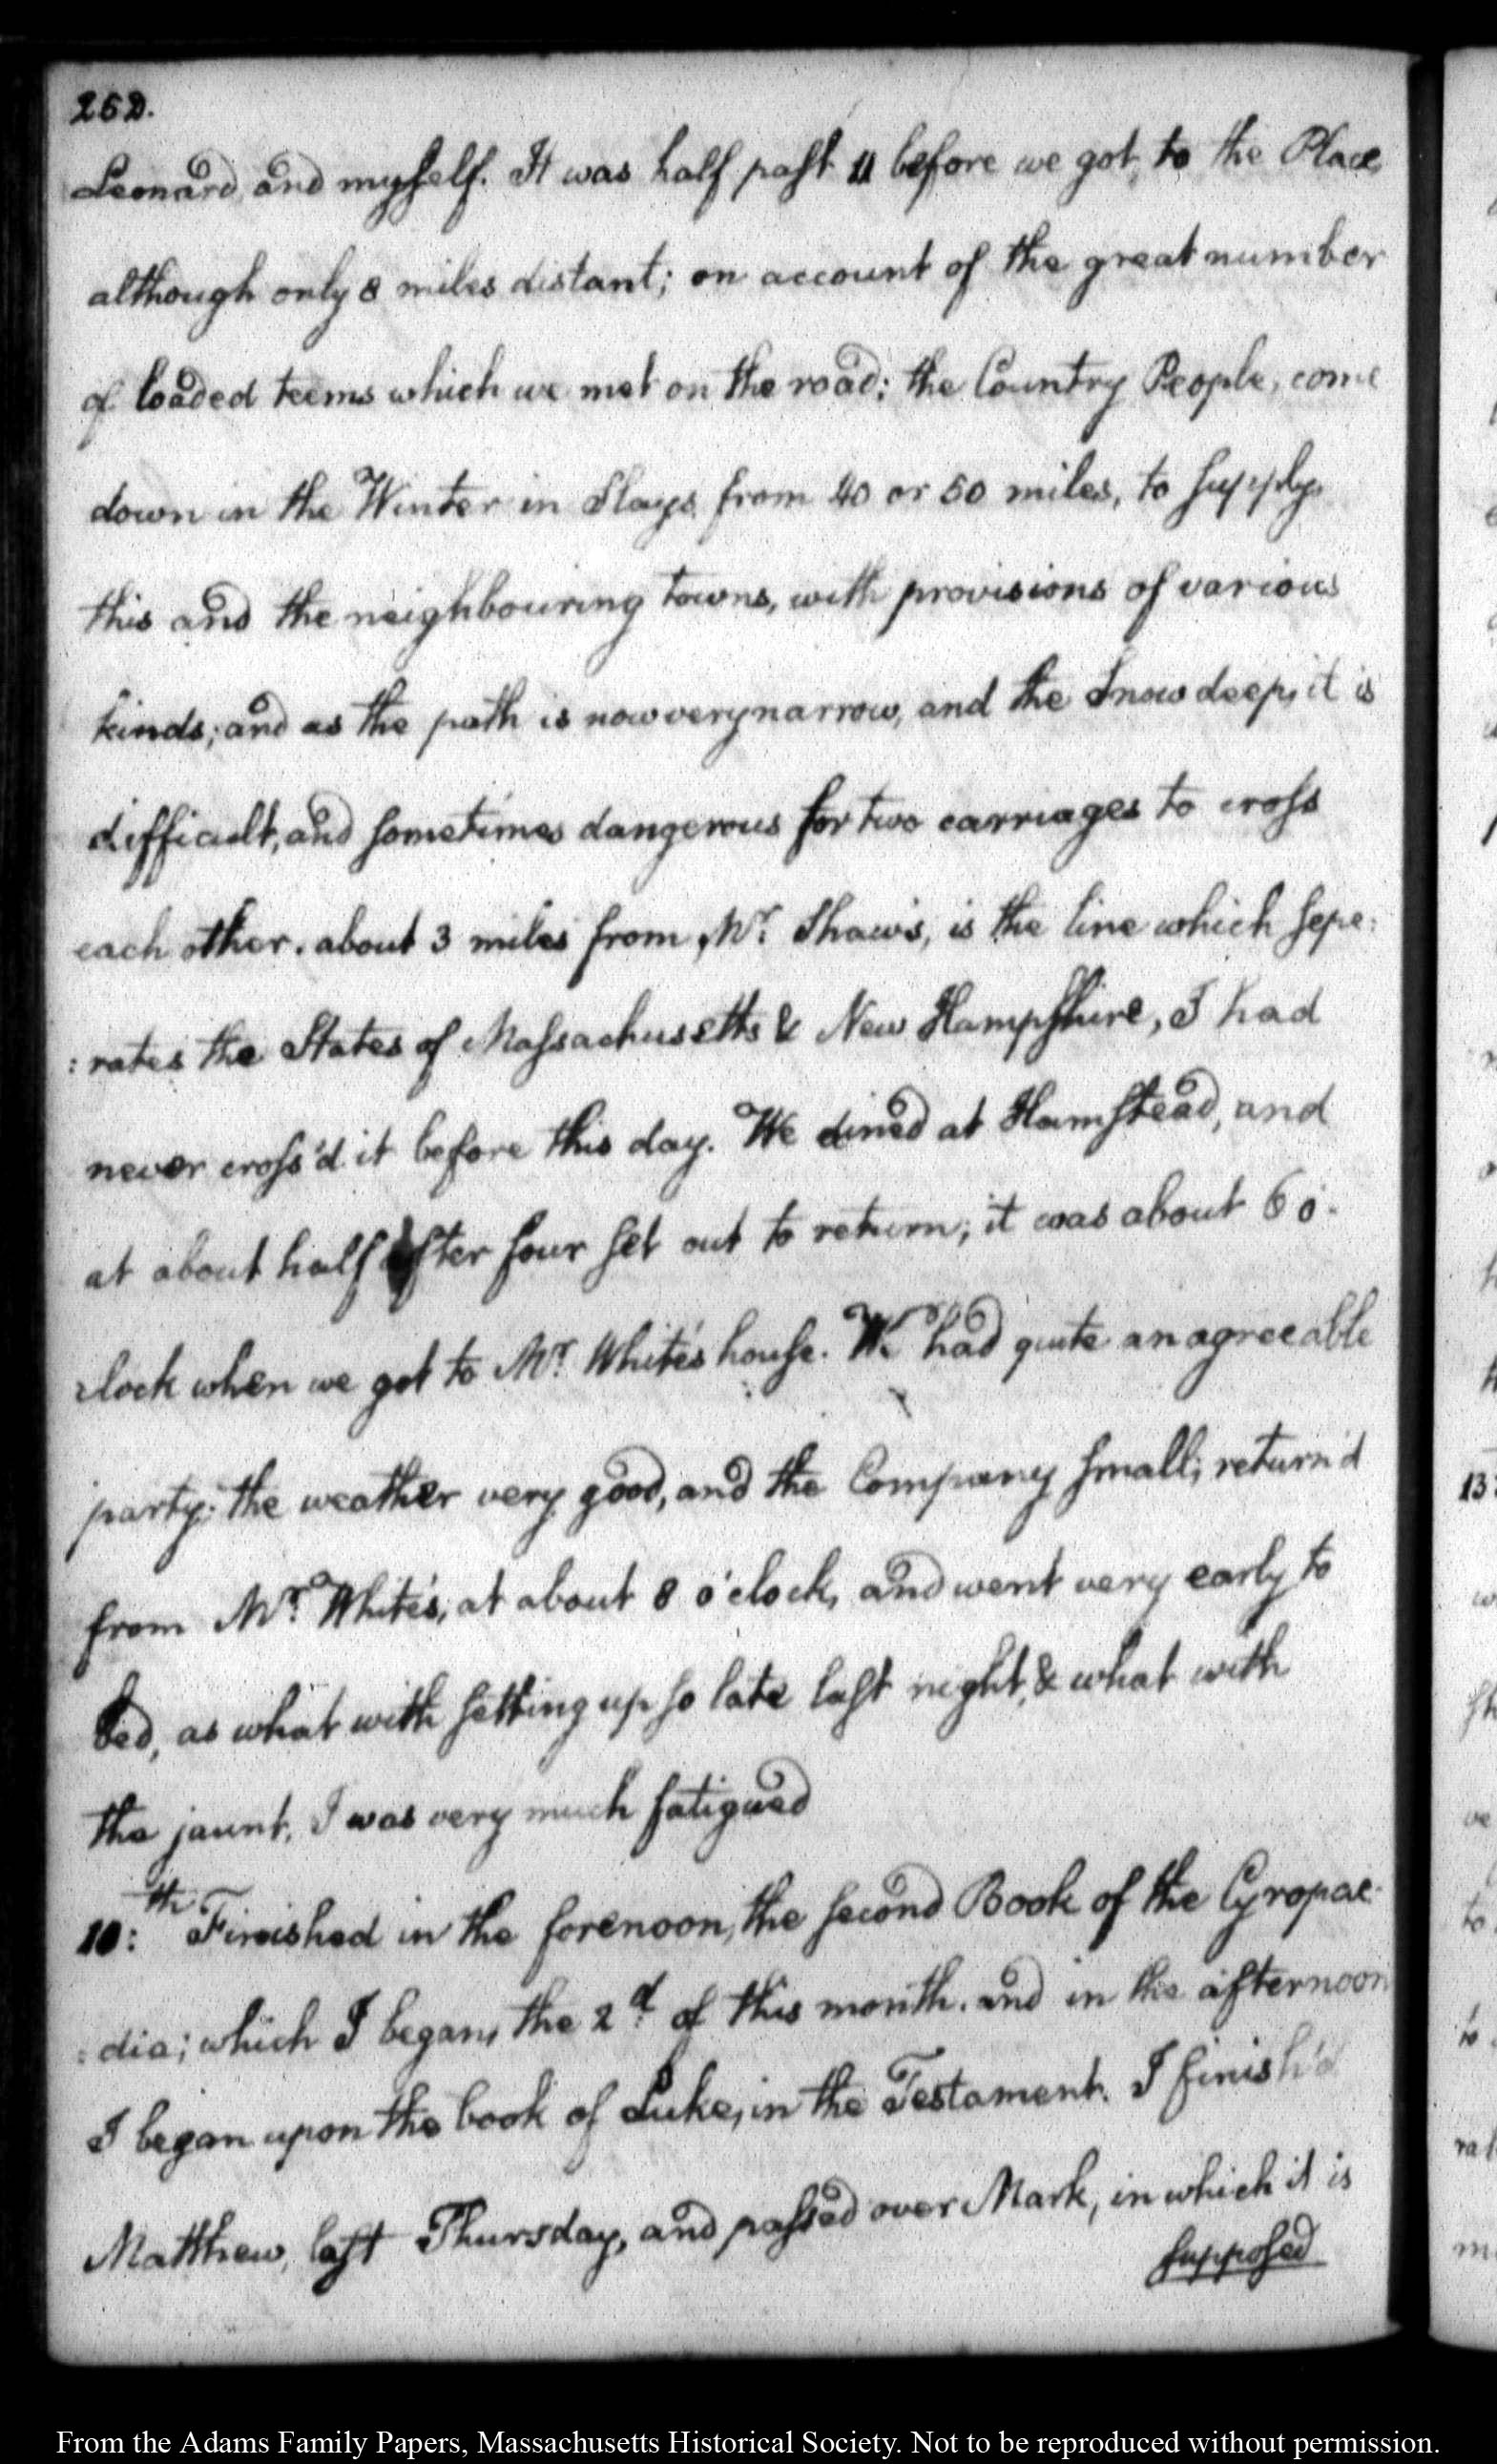 252.
Leonard, and myself. It was half past 11 before we got, to the Place,
although only 8 miles distant; on account of the great number
of loaded teems which we met on the road: the Country People, come
down in the Winter in Slays, from 40 or 50 miles, to supply
this and the neighbouring towns, with provisions of various
kinds; and as the path is now very narrow, and the Snow deep, it is
difficult, and sometimes dangerous for two carriages to cross
each other. about 3 miles from Mr. Shaw's, is the line which sepe:
:rates the States of Massachusetts & New Hampshire, I had
never cross'd it before this day. We dined at Hamstead, and
at about half after four set out to return; it was about 6 o'
clock when we got to Mr. White's house. We had quite an agreeable
party: the weather very good, and the Company small; return'd
from Mr. White's, at about 8 o'clock, and went very early to
bed, as what with setting up so late last night, & what with
the jaunt, I was very much fatigued
10:th Finished in the forenoon, the second Book of the Cyropae:
:dia; which I began, the 2d. of this month. and in the afternoon
I began upon the book of Luke, in the Testament. I finish'd
Matthew, last Thursday, and passed over Mark, in which it is
supposed
From the Adams Family Papers, Massachusetts Historical Society. Not to be reproduced without permission.